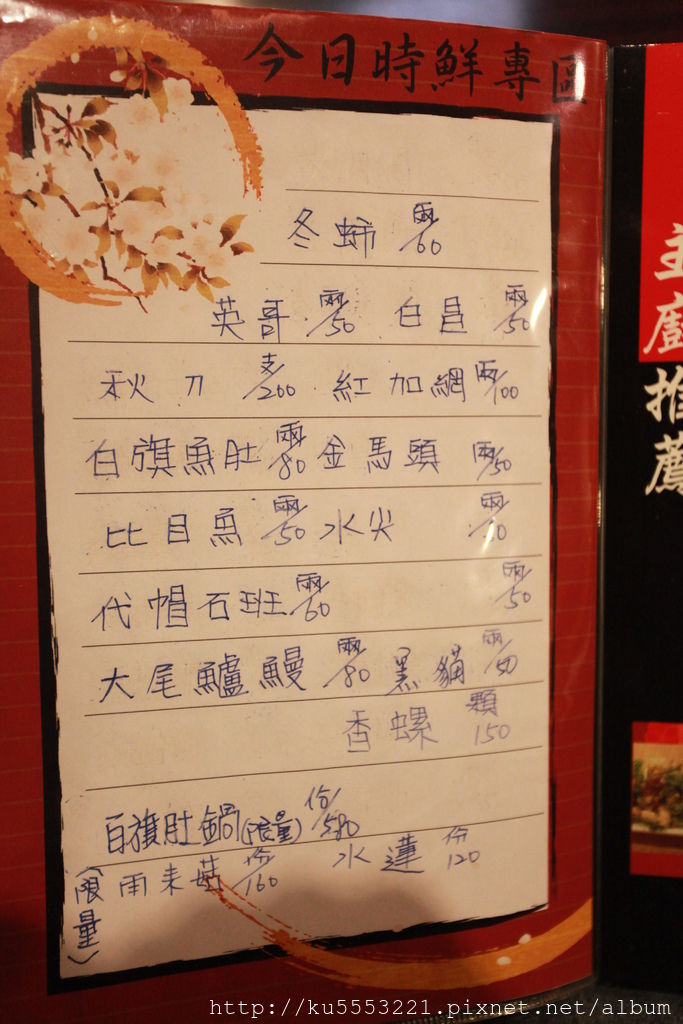 今日時鮮專區
冬蛳 兩/60
英哥 兩/50 白昌 兩/50
秋刀 支/200 紅加網 兩/100
白旗魚肚 兩/80 金馬頭 兩/50
比目魚 兩/50 水尖 兩/
代帽石班 兩/60 兩/50
大尾鱸鰻 兩/80 黑貓 兩/50
香螺 顆150
白旗肚鍋(限量) 份/580
雨耒菇 份/160 水蓮 份120
(限量)
主廚推薦
http://ku5553221.pixnet.net/album